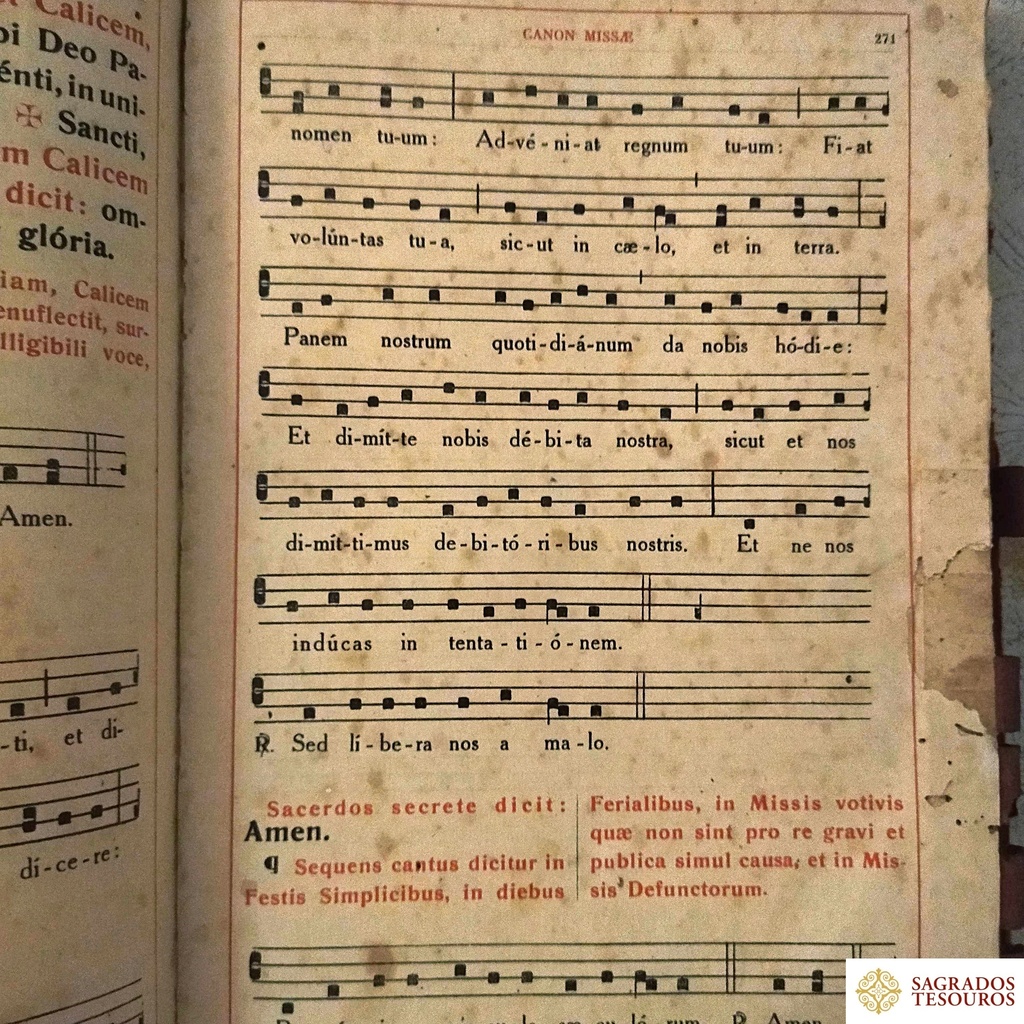 Calicem,
Deo Pa-
énti, in uni-
✠ Sancti,
Calicem
dicit: om-
glória.
iam, Calicem
enuflectit, sur-
lligibili voce,
Amen.
-ti, et di-
dí-ce-re:
CANON MISSÆ
271
nomen tu-um: Ad-vé-ni-at regnum tu-um: Fi-at
vo-lún-tas tu-a, sic-ut in cæ-lo, et in terra.
Panem nostrum quoti-di-á-num da nobis hó-di-e:
Et di-mít-te nobis dé-bi-ta nostra, sicut et nos
di-mít-ti-mus de-bi-tó-ri-bus nostris. Et ne nos
indúcas in tenta-ti-ó-nem.
℟. Sed lí-be-ra nos a ma-lo.
Sacerdos secrete dicit:
Amen.
¶ Sequens cantus dicitur in
Festis Simplicibus, in diebus
Ferialibus, in Missis votivis
quæ non sint pro re gravi et
publica simul causa, et in Mis-
sis Defunctorum.
℟. Amen.
SAGRADOS
TESOUROS